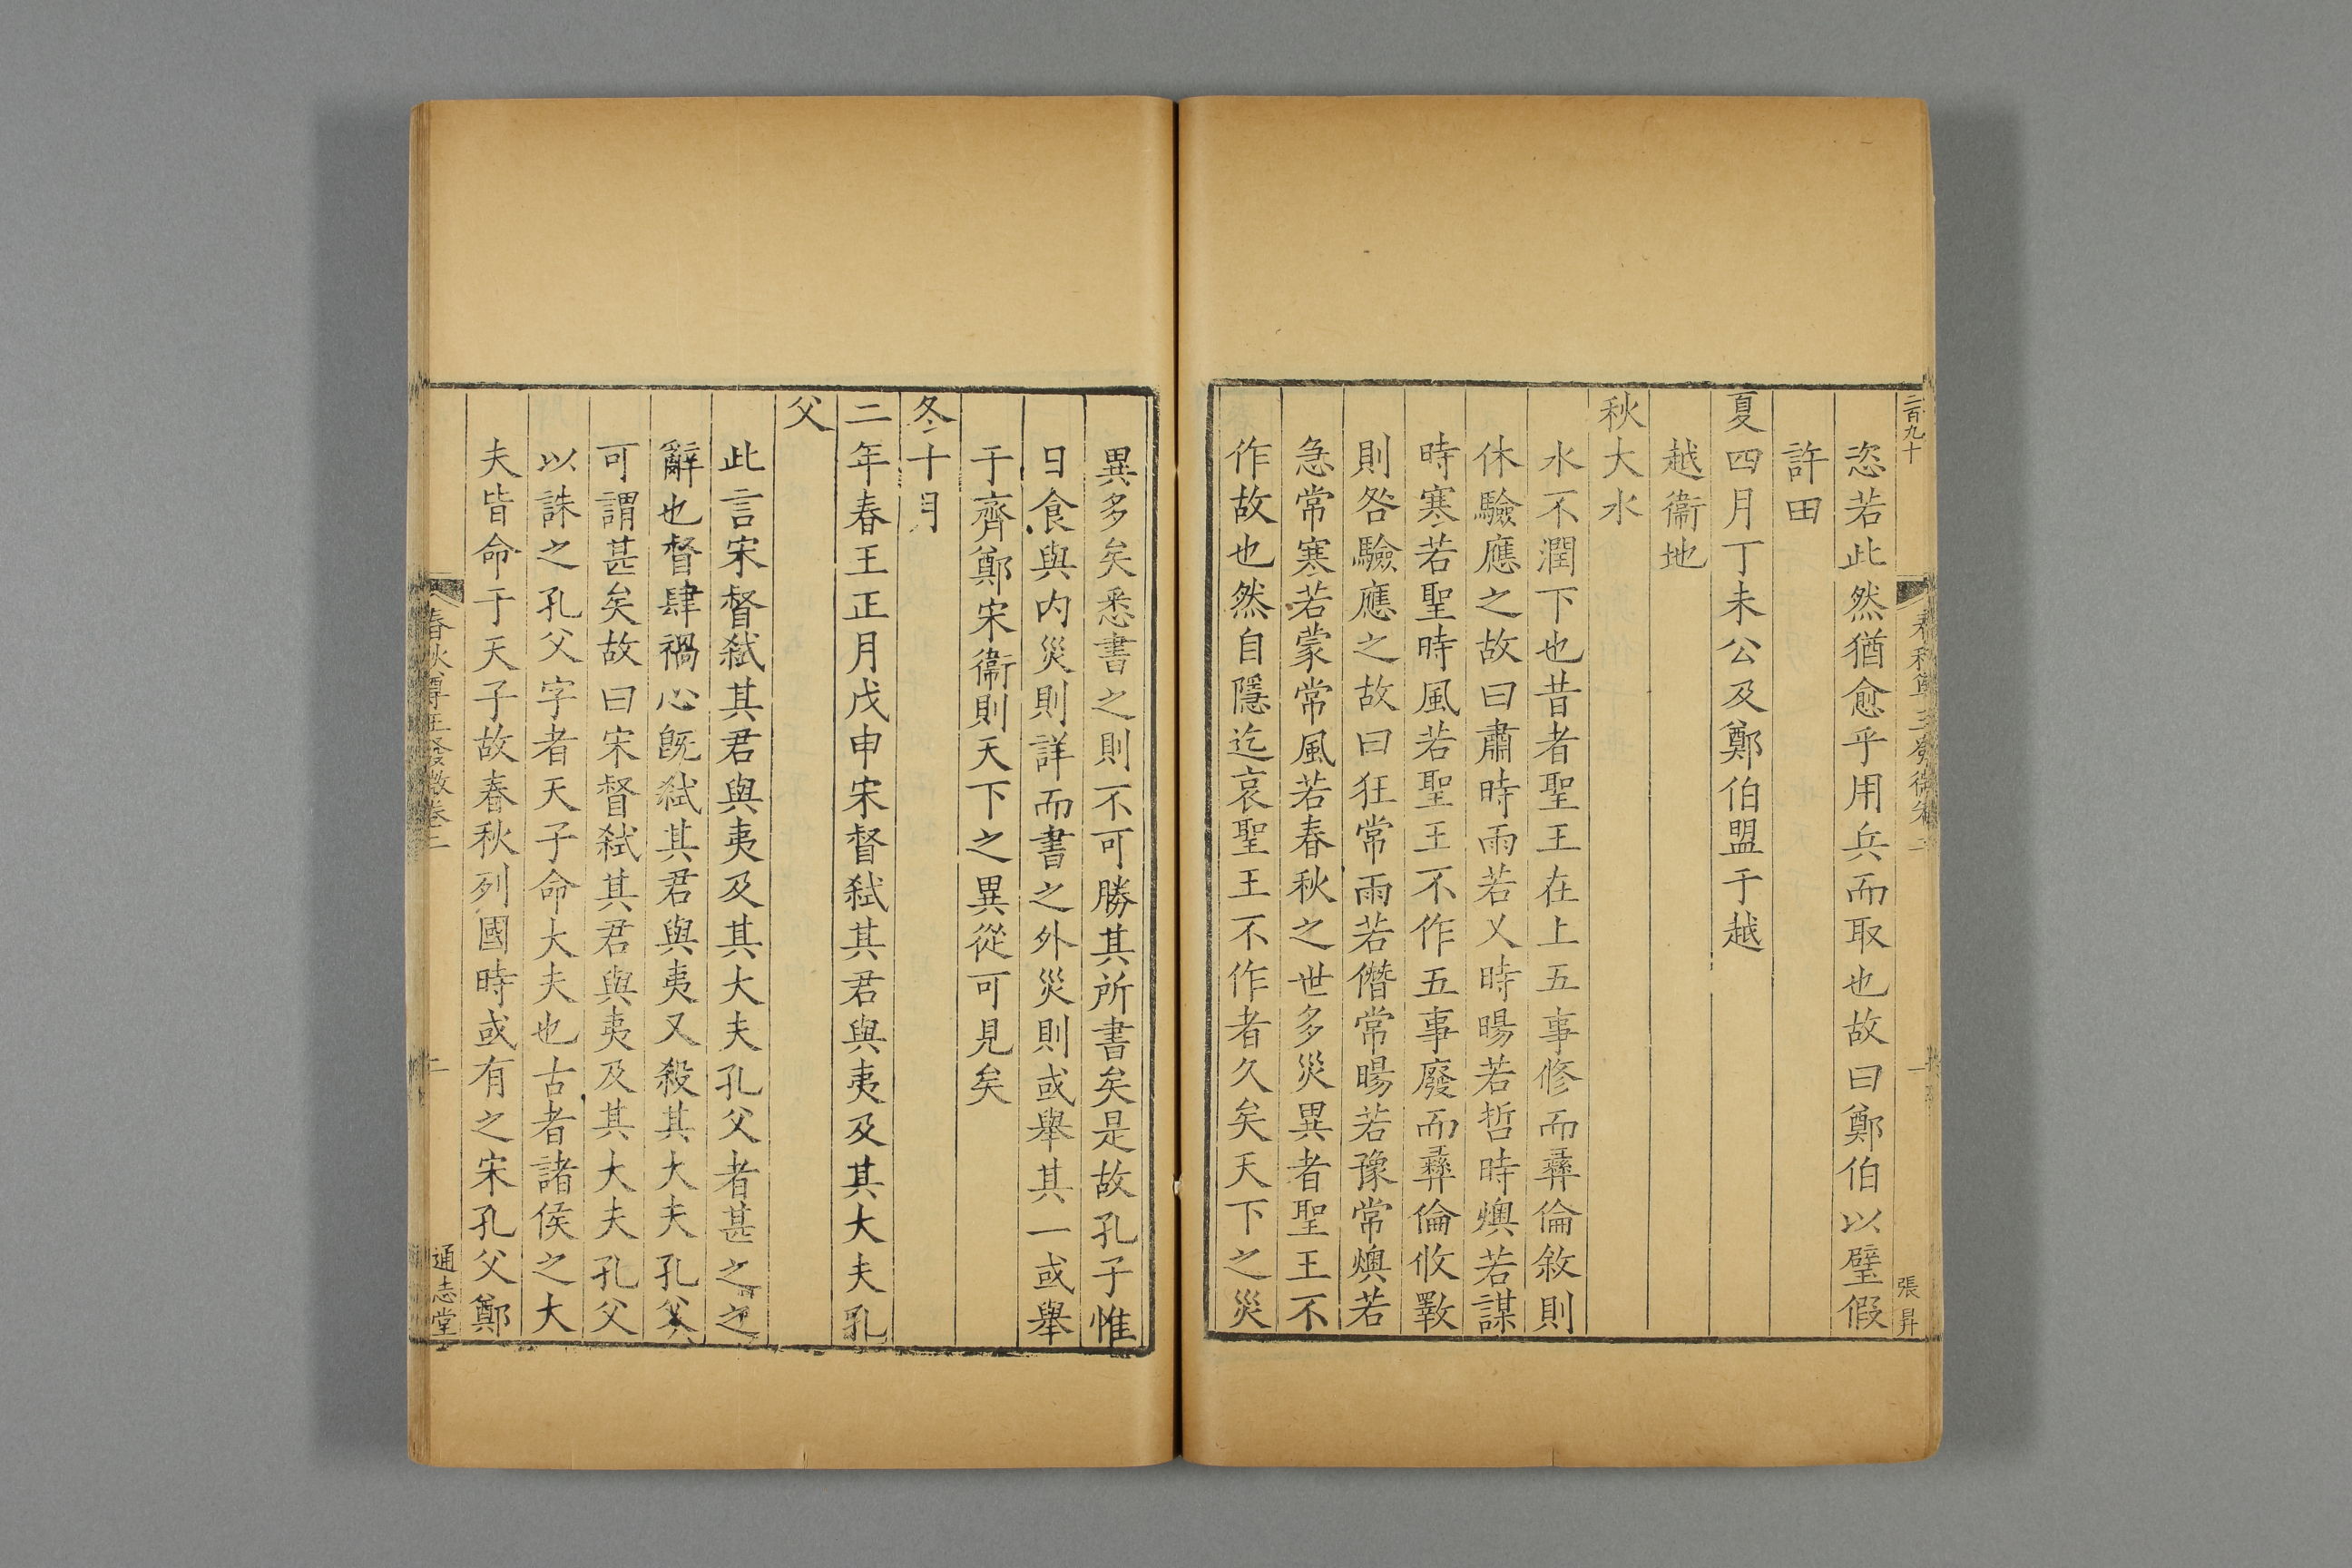 二百九十
張昇
恣若此然猶愈乎用兵而取也故曰鄭伯以璧假
許田
夏四月丁未公及鄭伯盟于越
越衞地
秋大水
水不潤下也昔者聖王在上五事修而彝倫敘則
休驗應之故曰肅時雨若乂時暘若哲時燠若謀
時寒若聖時風若聖王不作五事廢而彝倫攸斁
則咎驗應之故曰狂常雨若僭常暘若豫常燠若
急常寒若蒙常風若春秋之世多災異者聖王不
作故也然自隱迄哀聖王不作者久矣天下之災
異多矣悉書之則不可勝其所書矣是故孔子惟
日食與内災則詳而書之外災則或舉其一或舉
于齊鄭宋衞則天下之異從可見矣
冬十月
二年春王正月戊申宋督弑其君與夷及其大夫孔
父
此言宋督弑其君與夷及其大夫孔父者甚之之
辭也督肆禍心旣弑其君與夷又殺其大夫孔父
可謂甚矣故曰宋督弑其君與夷及其大夫孔父
以誅之孔父字者天子命大夫也古者諸侯之大
夫皆命于天子故春秋列國時或有之宋孔父鄭
春秋尊王發微卷二
二
通志堂